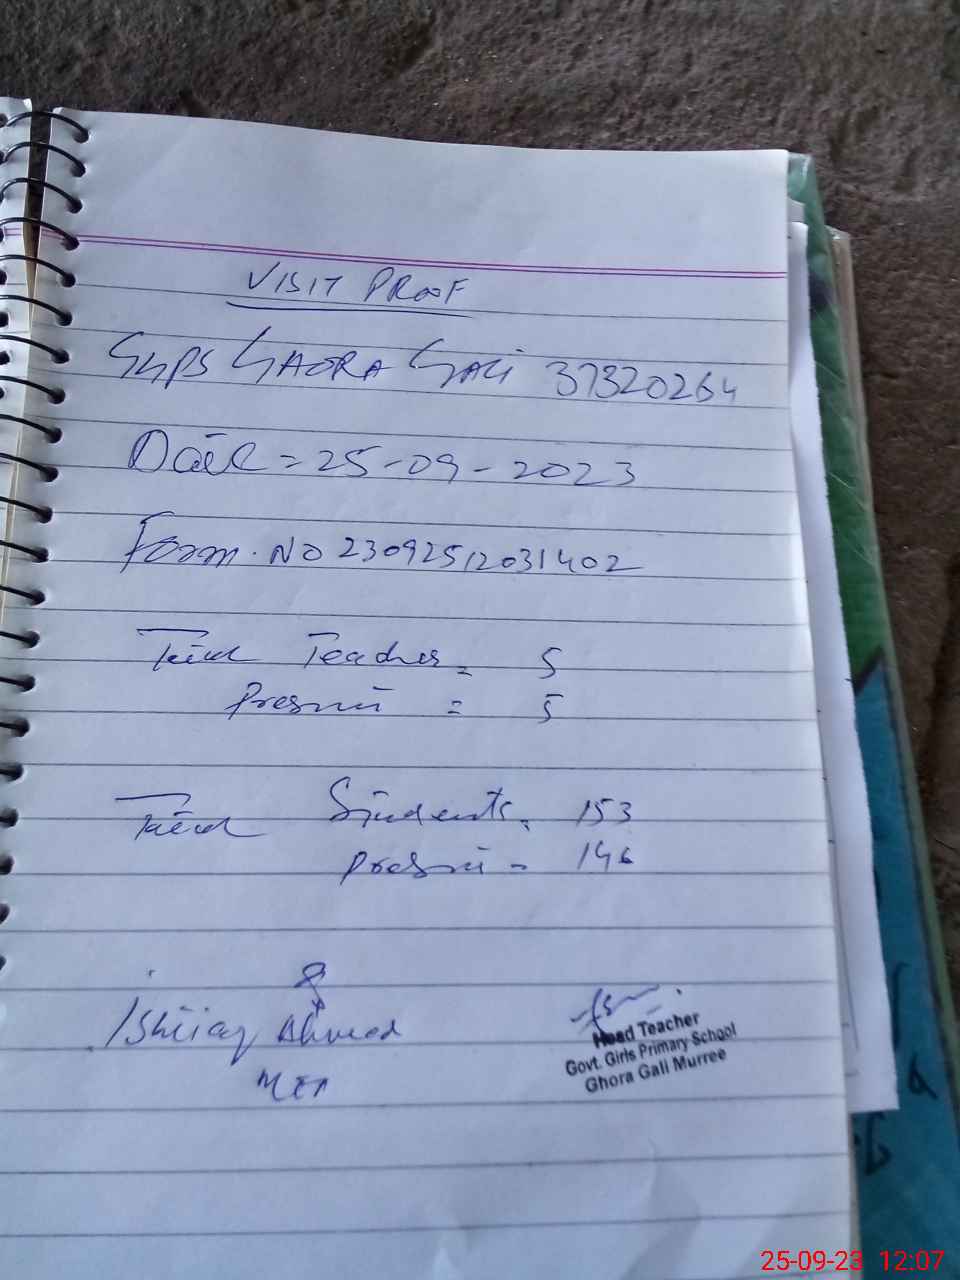 VISIT PROOF
GGPS GHORA GALI 37320264
Date = 25-09-2023
Form. No 23092512031402
Total Teacher = 5
Present = 5
Total Students = 153
Present = 146
Ishtiaq Ahmed
MEA
Head Teacher
Govt. Girls Primary School
Ghora Gali Murree
25-09-23 12:07